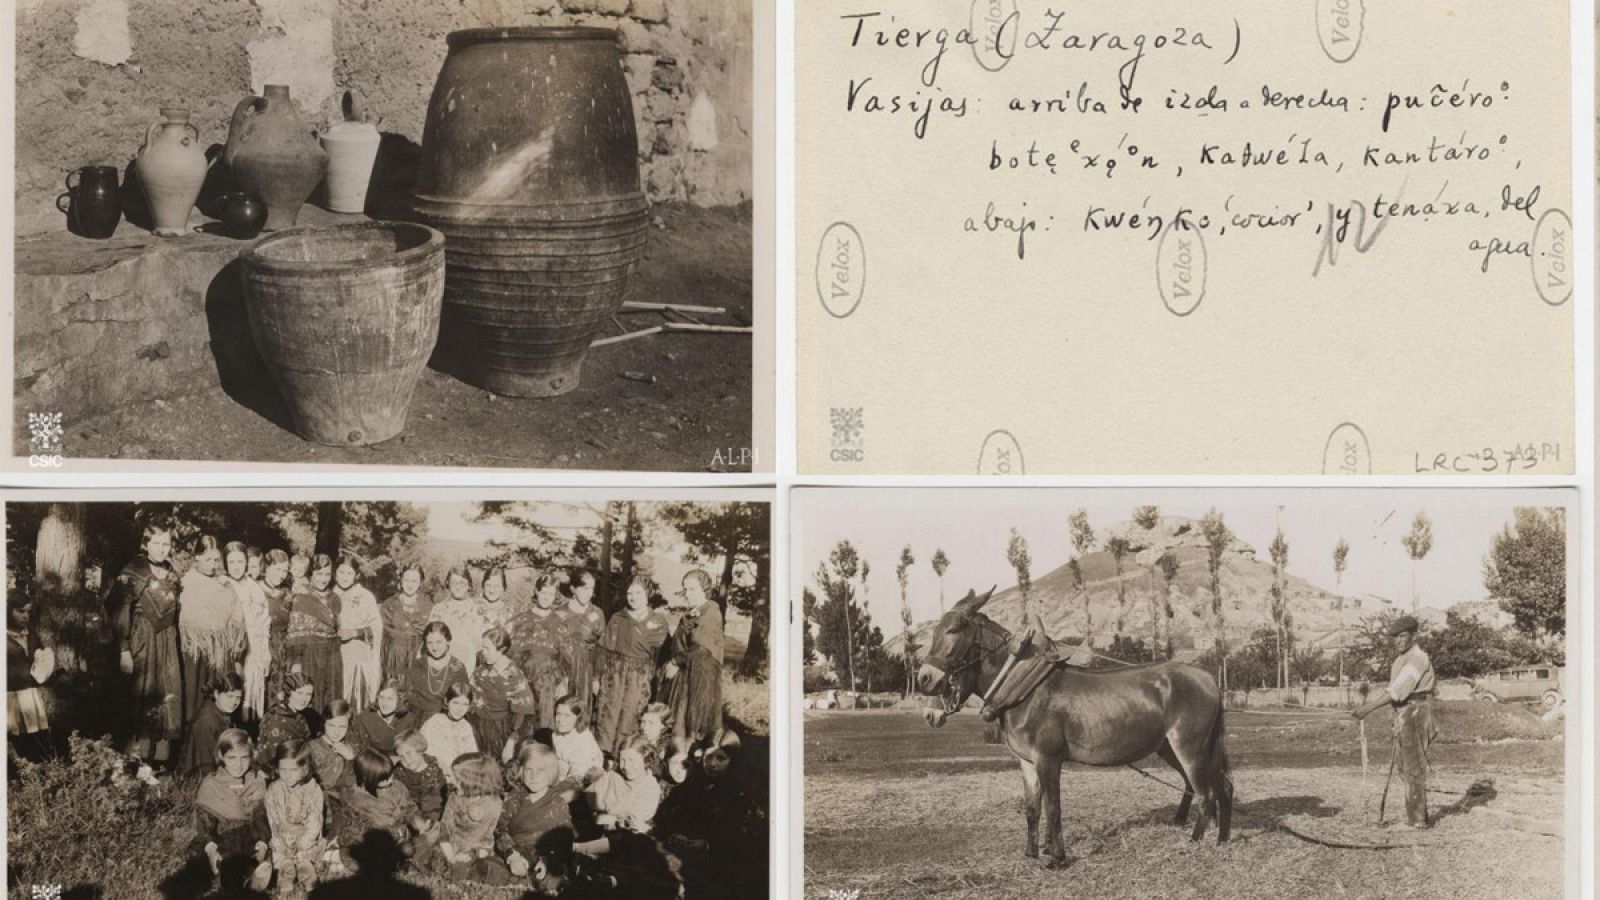 CSIC
A·L·P·I
Tierga (Zaragoza)
Vasijas: arriba de izda a derecha: pučéroº:
botẹᵉxọ́ºn, Kaθwéla, kantároº,
abajo: kwéŋko, 'cocior', y tenáxa, del
agua.
Velox
Velox
Velox
Velox
Velox
lox
lox
CSIC
LRC-373
A·L·P·I